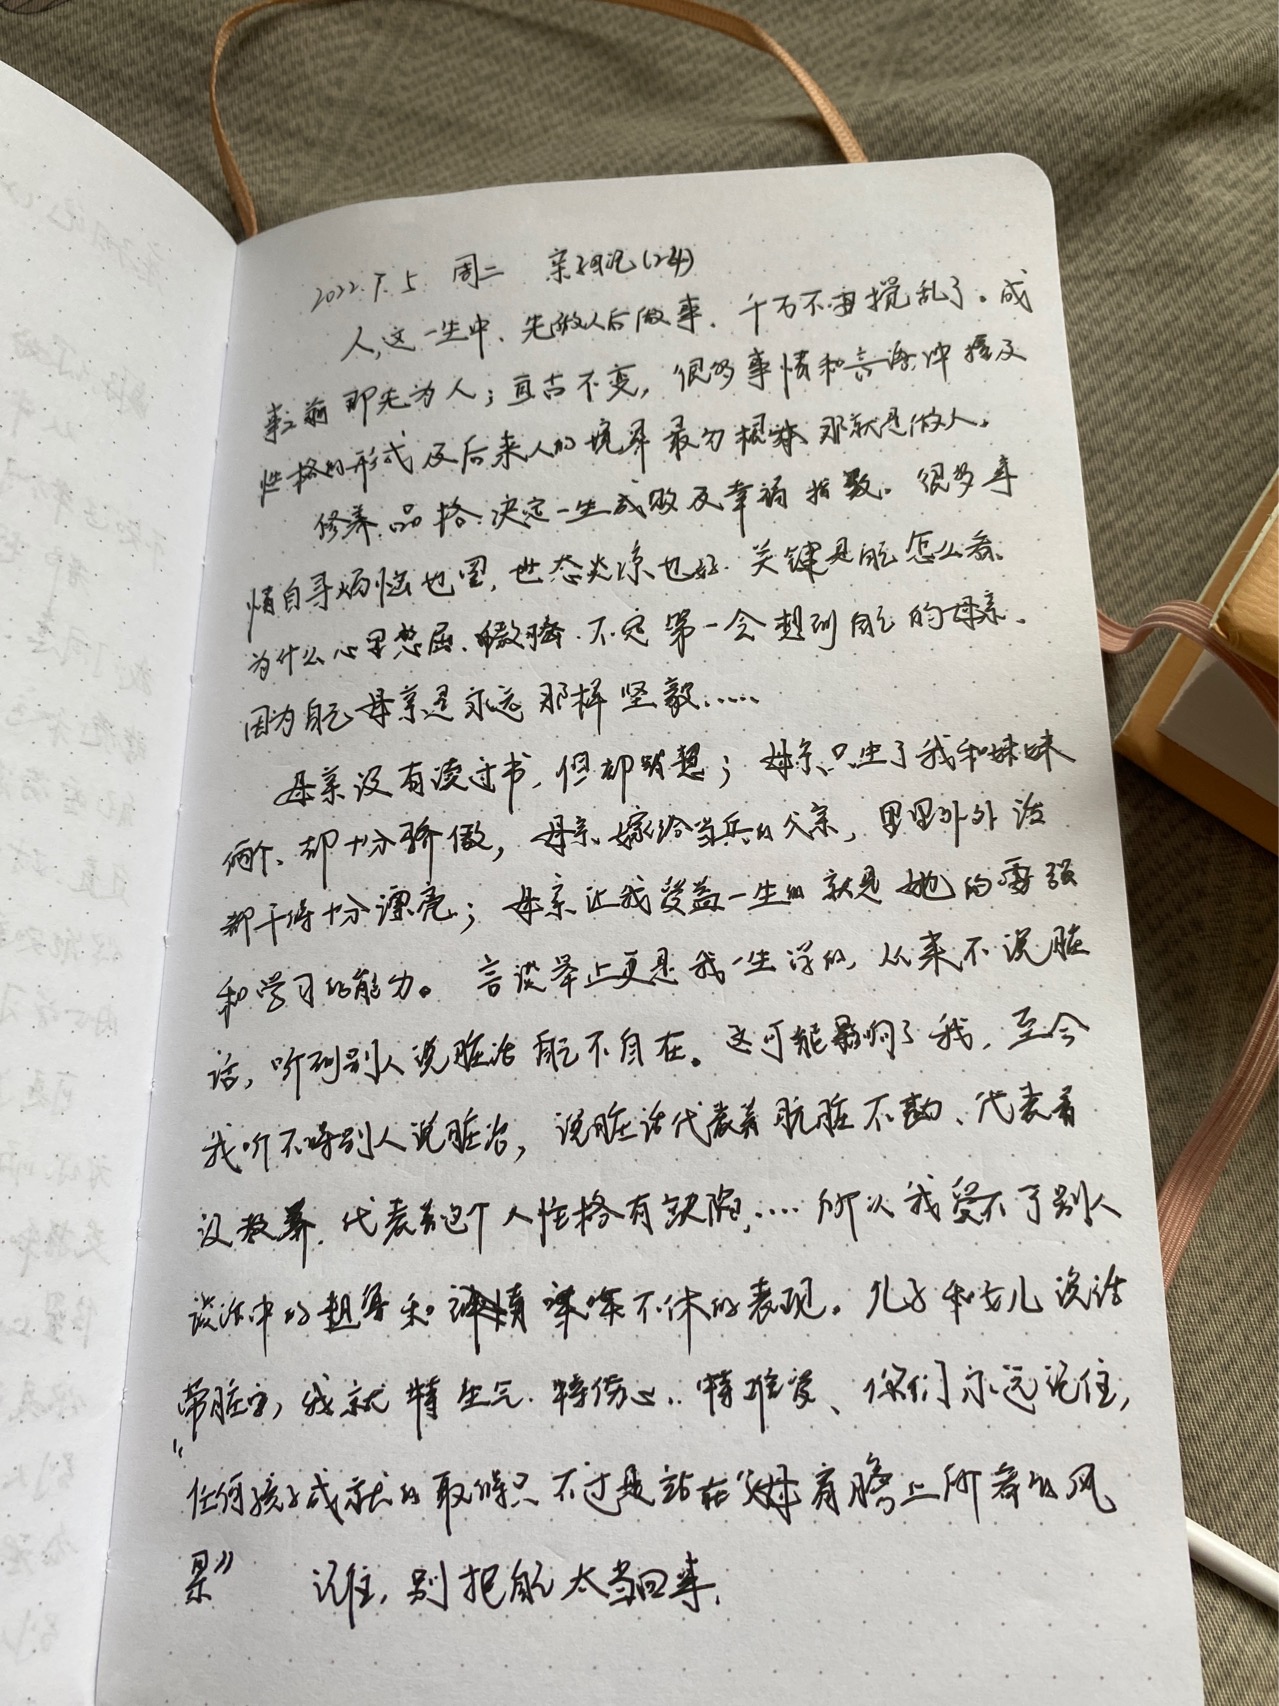 2022.7.5 周二 亲子日记(24)
人这一生中、先做人后做事、千万不由搅乱了。成
事之前即先为人；亘古不变，很多事情和言语冲撞及
性格的形式及后来人的境界最为根本那就是做人。
修养、品格、决定一生成败及幸福指数。很多事
情自寻烦恼也罢，世态炎凉也好、关键是自己怎么看、
为什么心里憋屈、不定第一会想到自己的母亲、
因为自己母亲是永远那样坚毅……
母亲没有读过书，但却明智；母亲只生了我和妹妹
俩个、却十分骄傲，母亲嫁给当兵的父亲，里里外外活
都干得十分漂亮；母亲让我受益一生的就是她的要强
和学习的能力。言谈举止更是我一生学的，从来不说脏
话，听到别人说脏话自己不自在。这可能影响了我，至今
我听不得别人说脏话，说脏话代表着肮脏不堪、代表着
没教养、代表着这个人性格有缺陷，……所以我受不了别人
谈话中的粗鲁和喋喋不休的表现。儿子和女儿说话
带脏字，我就特生气、特伤心、特难受、你们永远记住，
“任何孩子成就的取得只不过是站在父母肩膀上所看的风
景” 记住，别把自己太当回事，